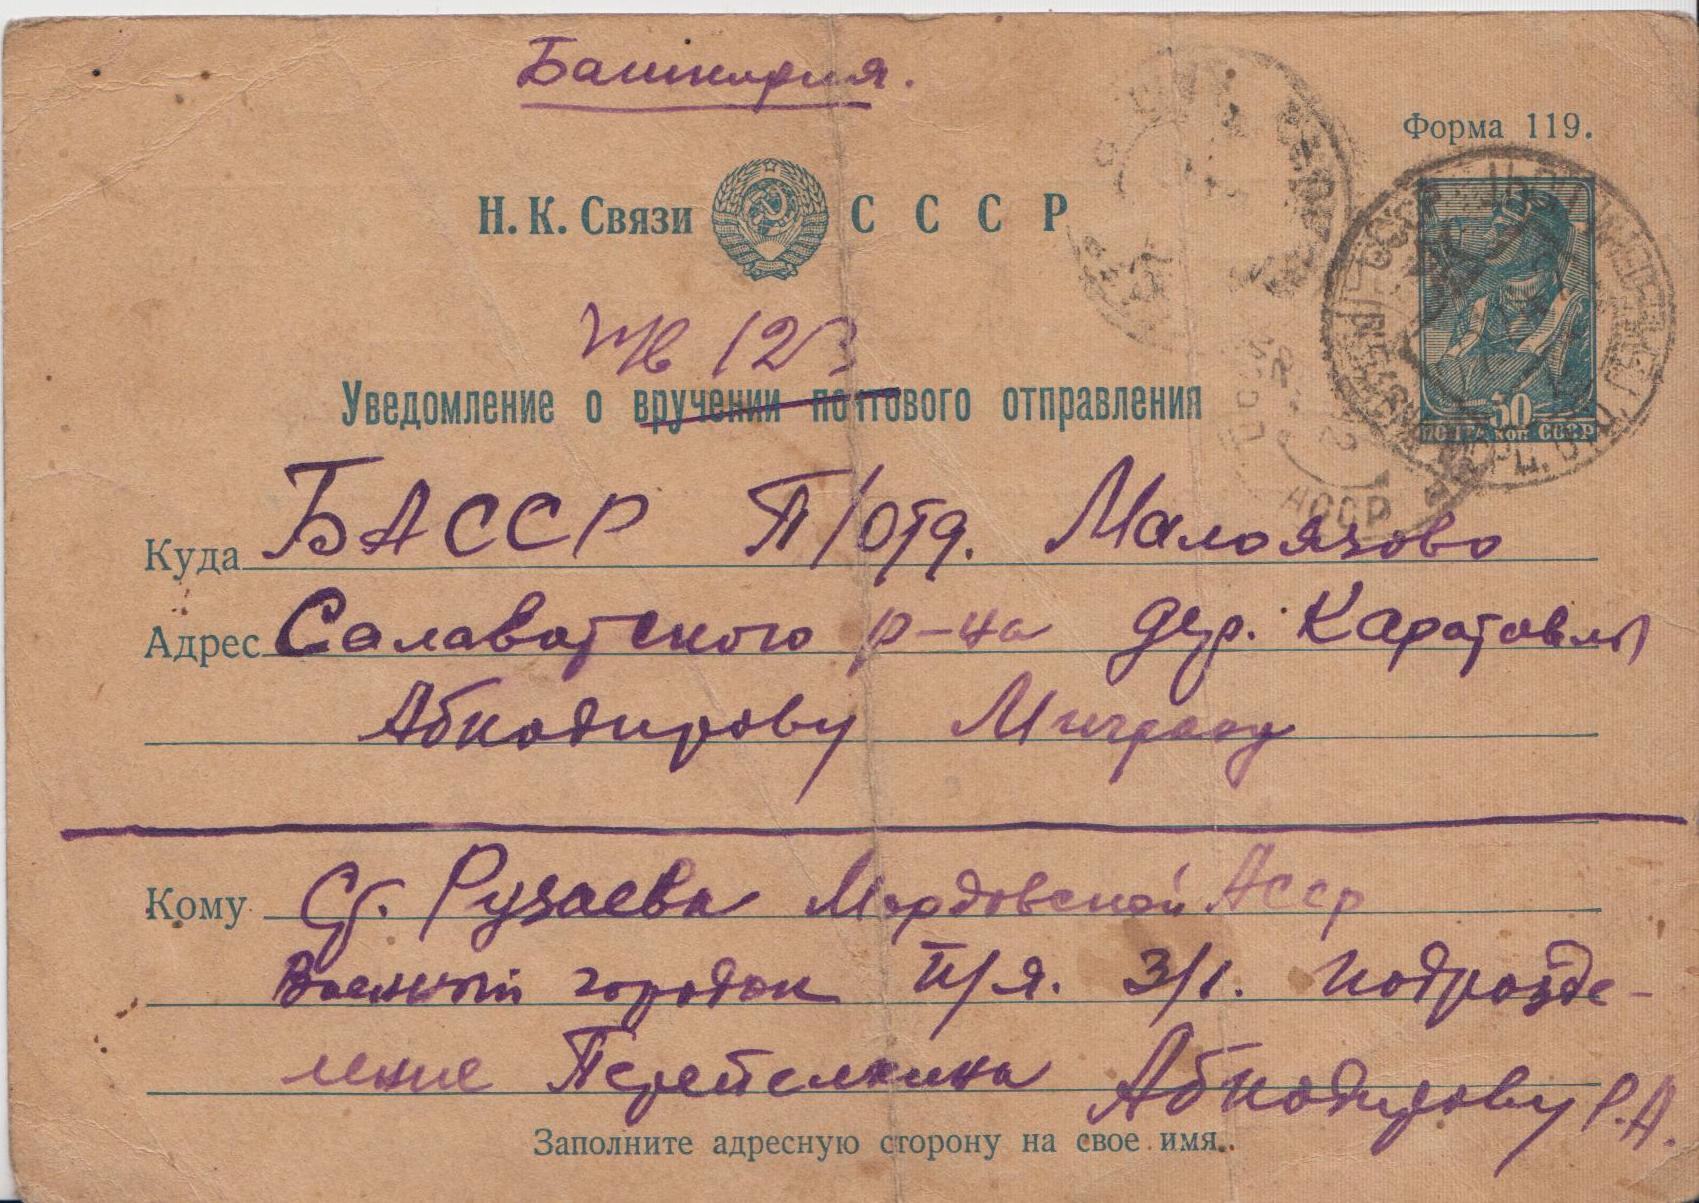 Башкирия.
Форма 119.
Н. К. Связи СССР
123
Уведомление о вручении почтового отправления
50
ПОЧТА КОП СССР
АССР
Куда БАССР П/отд. Малоязово
Адрес Салаватского р-на дер. Каратавлы
Абкадирову Миграву
Кому Ст. Рузаевка Мордовской АССР
Военный городок п/я. 3/1. подразде-
ление Перепелкина Абкадирову Р.А.
Заполните адресную сторону на свое имя.